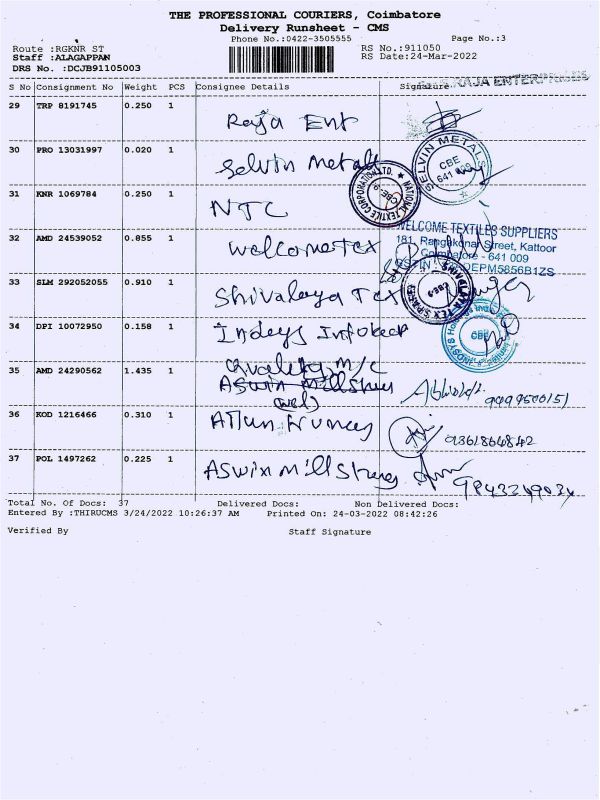 THE PROFESSIONAL COURIERS, Coimbatore
Delivery Runsheet - CMS
Phone No.:0422-3505555 Page No.:3
Route :RGKNR ST RS No.:911050
Staff :ALAGAPPAN RS Date:24-Mar-2022
DRS No. :DCJB91105003
S No Consignment No Weight PCS Consignee Details Signature
RAJA ENTERPRISES
29 TRP 8191745 0.250 1 Raja Ent
30 PRO 13031997 0.020 1 Selvin Metals
SELVIN METALS CBE 641
31 KNR 1069784 0.250 1 NTC
NATIONAL TEXTILE CORPORATION LTD. CBE-9
32 AMD 24539052 0.855 1 Welcometex
WELCOME TEXTILES SUPPLIERS
181, Rangakonar Street, Kattoor
Coimbatore - 641 009
DEPM5856B1ZS
33 SLM 292052055 0.910 1 Shivalaya Tex
SHIVALAYA TEX SPARES CBE-9
34 DPI 10072950 0.158 1
CBE
35 AMD 24290562 1.435 1 M/C
36 KOD 1216466 0.310 1
37 POL 1497262 0.225 1 Aswin Mill Stores
Total No. Of Docs: 37 Delivered Docs: Non Delivered Docs:
Entered By :THIRUCMS 3/24/2022 10:26:37 AM Printed On: 24-03-2022 08:42:26
Verified By Staff Signature